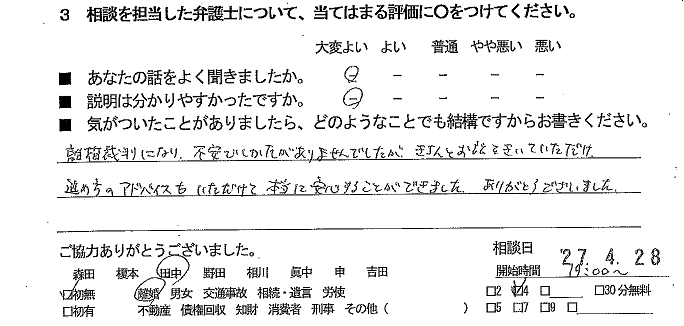 3 相談を担当した弁護士について、当てはまる評価に〇をつけてください。
大変よい よい 普通 やや悪い 悪い
■ あなたの話をよく聞きましたか。 － － － － －
■ 説明は分かりやすかったですか。 － － － － －
■ 気がついたことがありましたら、どのようなことでも結構ですからお書きください。
離婚裁判になり、不安でしかたがありませんでしたが、きちんとお話をきいていただけ、
進め方のアドバイスもいただけて本当に安心することができました。ありがとうございました。
ご協力ありがとうございました。 相談日 27.4.28
森田 榎本 田中 野田 相川 眞中 申 吉田 開始時間 19:00～
□初無 離婚 男女 交通事故 相続・遺言 労使 □2 □4 □ □30分無料
□初有 不動産 債権回収 知財 消費者 刑事 その他（ ） □5 □7 □9 □